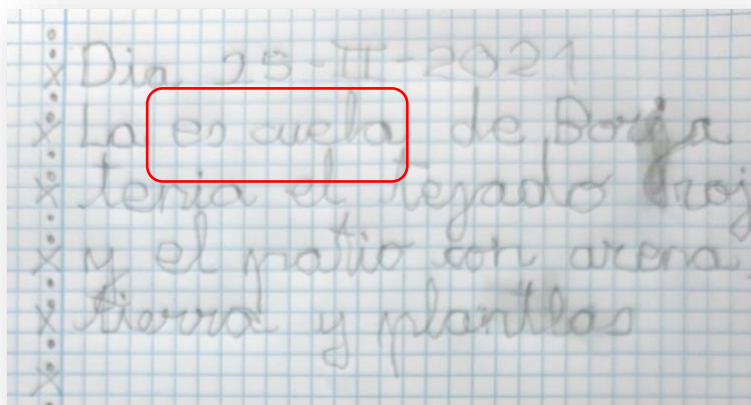 Dia 25-II-2021
La es cuela de Borja
tenia el tejado roj
y el patio con arena
tierra y plantas